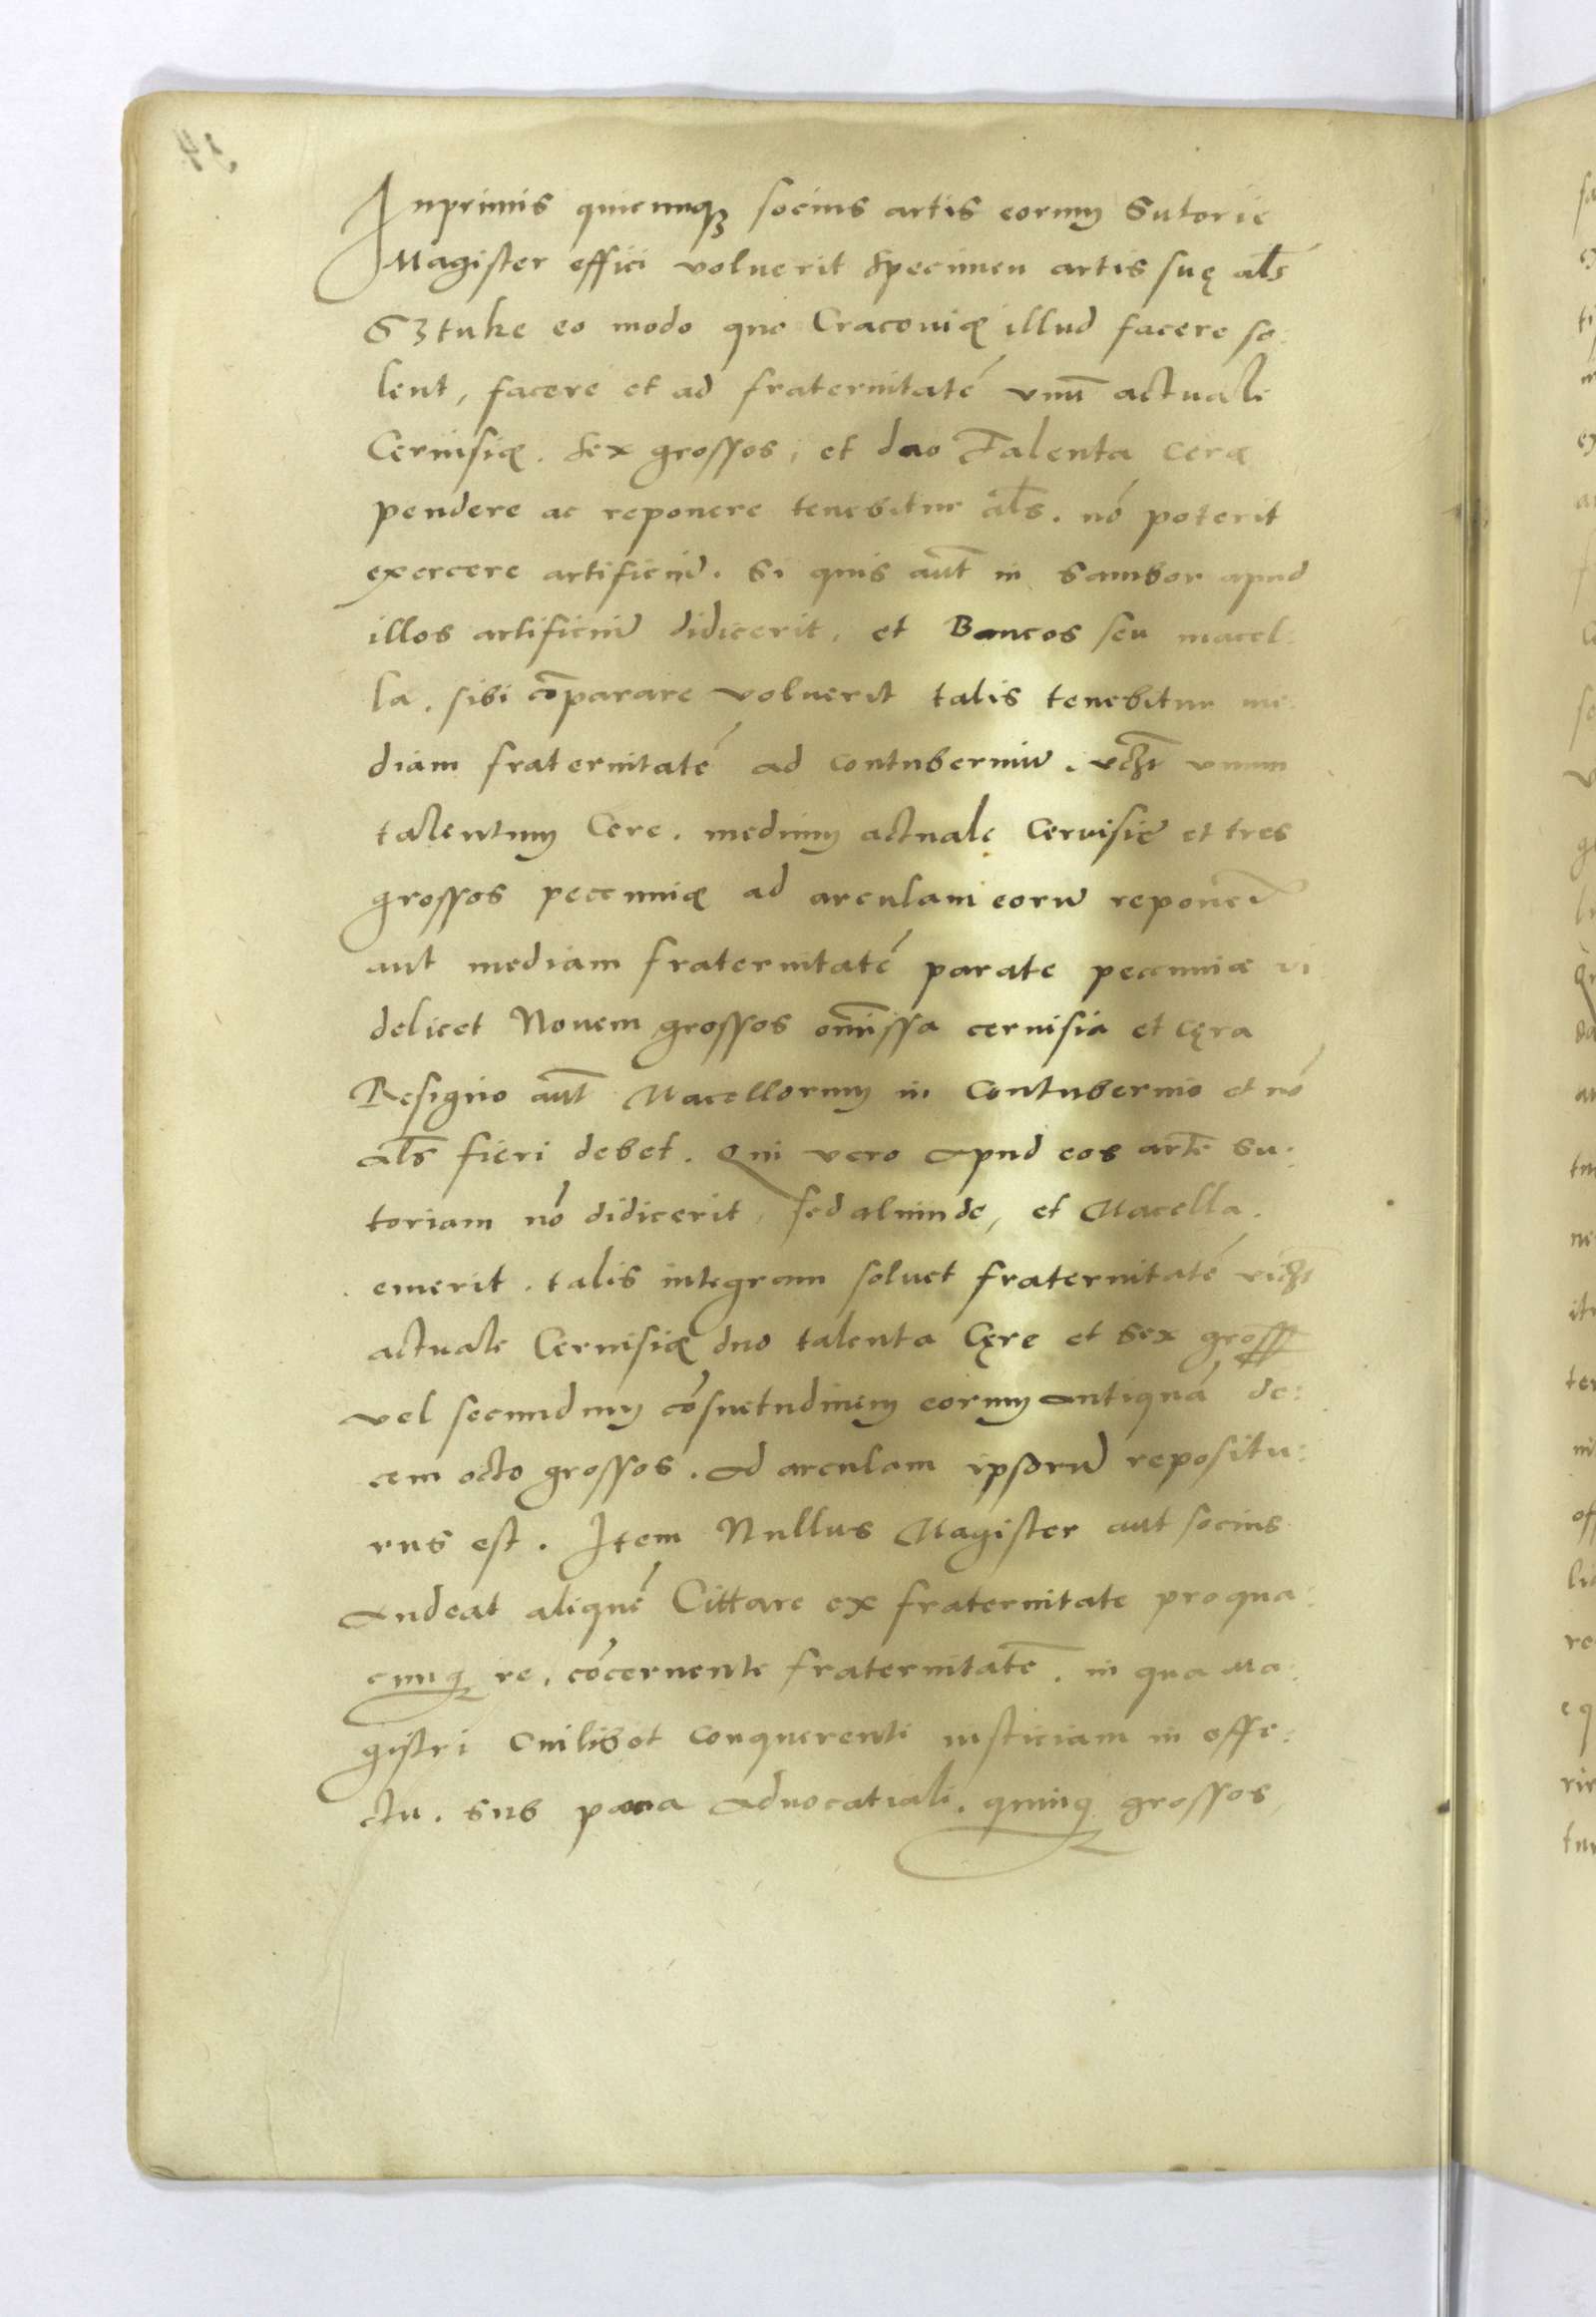 Inprimis quicunqꝫ socius artis eorum Sutorie
Magister effici voluerit specimen artis suę al̃s
Sztuke eo modo quo Cracouiæ illud facere so:
lent, facere et ad fraternitatẽ vnũ actuale
Ceruisiæ. sex grossos, et duo Talenta Ceræ
pendere ac reponere tenebitur al̃s. nõ poterit
exercere artificiũ. Si quis aũt in Sambor apud
illos artificiũ didicerit, et Bancos seu macel:
la, sibi cõparare voluerit talis tenebitur me:
diam fraternitatẽ ad contuberniũ. vꝫt vnum
talentum Cere. medium actuale Ceruisię et tres
grossos pecuniæ ad arculam eorũ reponeř
aut mediam fraternitatẽ parate pecuniæ vi
delicet Nouem grossos omissa ceruisia et cęra
Resigño aũt Macellorum in Contubernio et nõ
al̃s fieri debet. Qui vero apud eos artẽ su:
toriam nõ didicerit, sed aliunde, et Macella.
emerit. talis integram soluet fraternitatẽ vicꝫt
actuale Ceruisiæ duo talenta Cęre et sex gross
vel secundum cõsuetudinem eorum antiquã de:
cem octo grossos. ad arculam ipsorũ repositu:
rus est. Item Nullus Magister aut socius
audeat aliquẽ Cittare ex fraternitate pro qua:
cunq re, cõcernente fraternitatẽ. in qua Ma:
gistri Cuilibet conquerenti iusticiam in effe:
ctu. sub pœna aduocatiali. quinq grossos